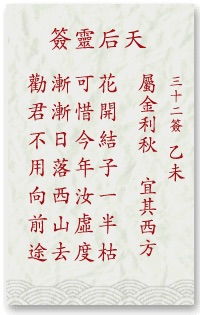 天后靈簽
三十二簽 乙未
屬金利秋 宜其西方
花開結子一半枯
可惜今年汝虛度
漸漸日落西山去
勸君不用向前途